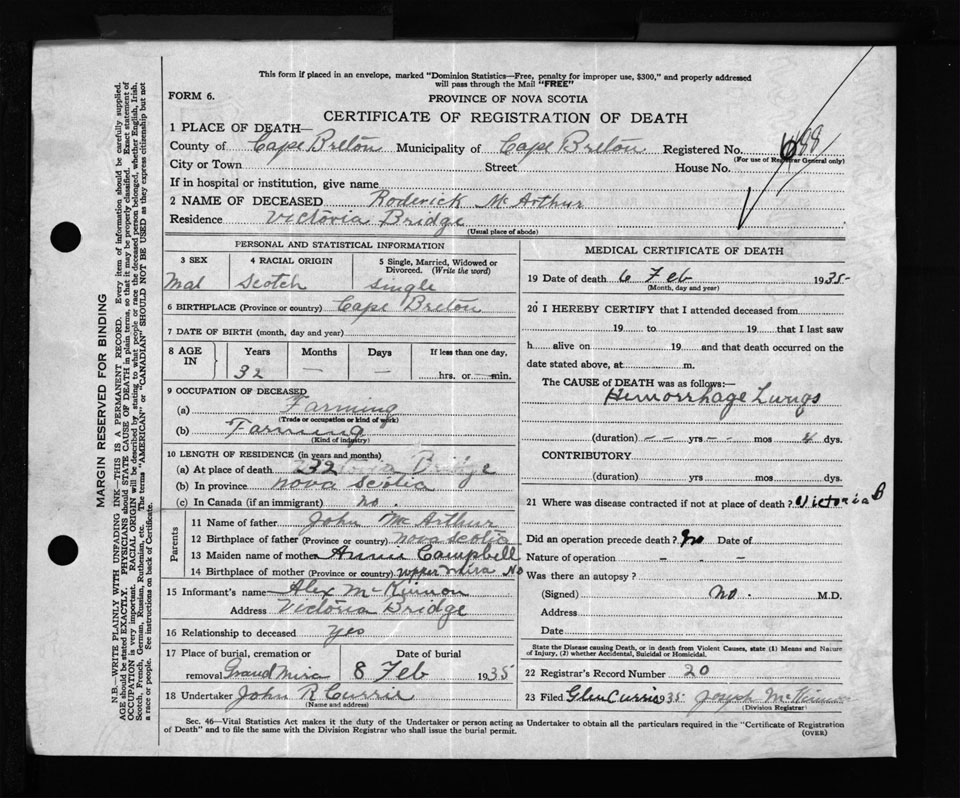 This form if placed in an envelope, marked "Dominion Statistics—Free, penalty for improper use, $300," and properly addressed
will pass through the Mail "FREE"
FORM 6.
PROVINCE OF NOVA SCOTIA
CERTIFICATE OF REGISTRATION OF DEATH
1 PLACE OF DEATH—
County of Cape Breton Municipality of Cape Breton Registered No. 698
(For use of Registrar General only)
City or Town Street House No.
If in hospital or institution, give name
2 NAME OF DECEASED Roderick McArthur
Residence Victoria Bridge
(Usual place of abode)
PERSONAL AND STATISTICAL INFORMATION
3 SEX 4 RACIAL ORIGIN 5 Single, Married, Widowed or
Divorced. (Write the word)
Mal Scotch Single
6 BIRTHPLACE (Province or country) Cape Breton
7 DATE OF BIRTH (month, day and year)
8 AGE IN Years Months Days If less than one day,
32 — — hrs. or — min.
9 OCCUPATION OF DECEASED
(a) Farming
(Trade or occupation or kind of work)
(b) Farming
(Kind of industry)
10 LENGTH OF RESIDENCE (in years and months)
(a) At place of death 32 Bridge
(b) In province Nova Scotia
(c) In Canada (if an immigrant) no.
Parents
11 Name of father John McArthur
12 Birthplace of father (Province or country) Nova Scotia
13 Maiden name of mother Annie Campbell
14 Birthplace of mother (Province or country) upper Mira NS
15 Informant's name Alex McKinnon
Address Victoria Bridge
16 Relationship to deceased yes
17 Place of burial, cremation or Date of burial
removal Grand Mira 8 Feb 1935
18 Undertaker John R Currie
(Name and address)
MEDICAL CERTIFICATE OF DEATH
19 Date of death 6 Feb 1935
(Month, day and year)
20 I HEREBY CERTIFY that I attended deceased from
19 to 19 that I last saw
h alive on 19 and that death occurred on the
date stated above, at m.
The CAUSE of DEATH was as follows:—
Hemorrhage Lungs
(duration) – – yrs – – mos 4 dys.
CONTRIBUTORY
(duration) yrs mos dys.
21 Where was disease contracted if not at place of death? Victoria B
Did an operation precede death? No Date of
Nature of operation – –
Was there an autopsy?
(Signed) no. M.D.
Address
Date
State the Disease causing Death, or in death from Violent Causes, state (1) Means and Nature
of Injury, (2) whether Accidental, Suicidal or Homicidal.
22 Registrar's Record Number 20
23 Filed Glen Currie 35 Joseph McKinnon
(Division Registrar)
Sec. 46—Vital Statistics Act makes it the duty of the Undertaker or person acting as Undertaker to obtain all the particulars required in the "Certificate of Registration
of Death" and to file the same with the Division Registrar who shall issue the burial permit.
(OVER)
MARGIN RESERVED FOR BINDING
N.B.—WRITE PLAINLY WITH UNFADING INK—THIS IS A PERMANENT RECORD. Every item of information should be carefully supplied.
AGE should be stated EXACTLY. PHYSICIANS should STATE CAUSE OF DEATH in plain terms, so that it may be properly classified. Exact statement of
OCCUPATION is very important. RACIAL ORIGIN will be described by stating to what people or race the deceased person belonged, whether English, Irish,
Scotch, French, German, Russian, Ruthenian, etc. The terms "AMERICAN" or "CANADIAN" SHOULD NOT BE USED as they express citizenship but not
a race or people. See instructions on back of Certificate.